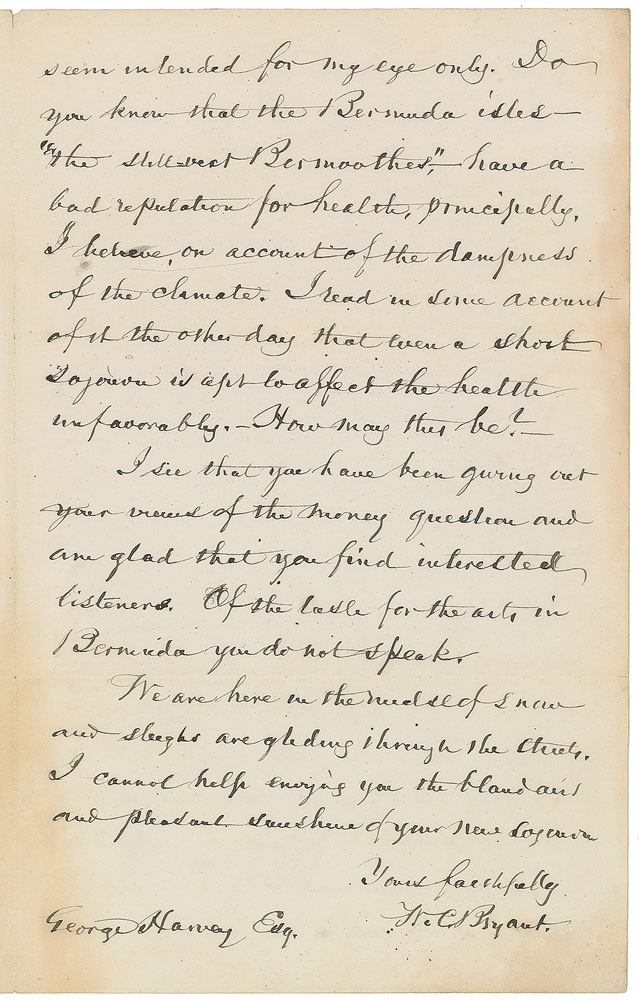 seem intended for my eye only. Do
you know that the Bermuda isles—
"the still-vext Bermoothes",— have a
bad reputation for health, principally,
I believe, on account of the dampness
of the climate. I read in some account
of it the other day that even a short
sojourn is apt to affect the health
unfavorably.— How may this be?—
I see that you have been giving out
your views of the money question and
am glad that you find interested
listeners. Of the taste for the arts in
Bermuda you do not speak.
We are here in the midst of snow
and sleighs are gliding through the streets.
I cannot help envying you the bland airs
and pleasant sunshine of your new sojourn
Yours faithfully
George Harvey Esq. W. C. Bryant.